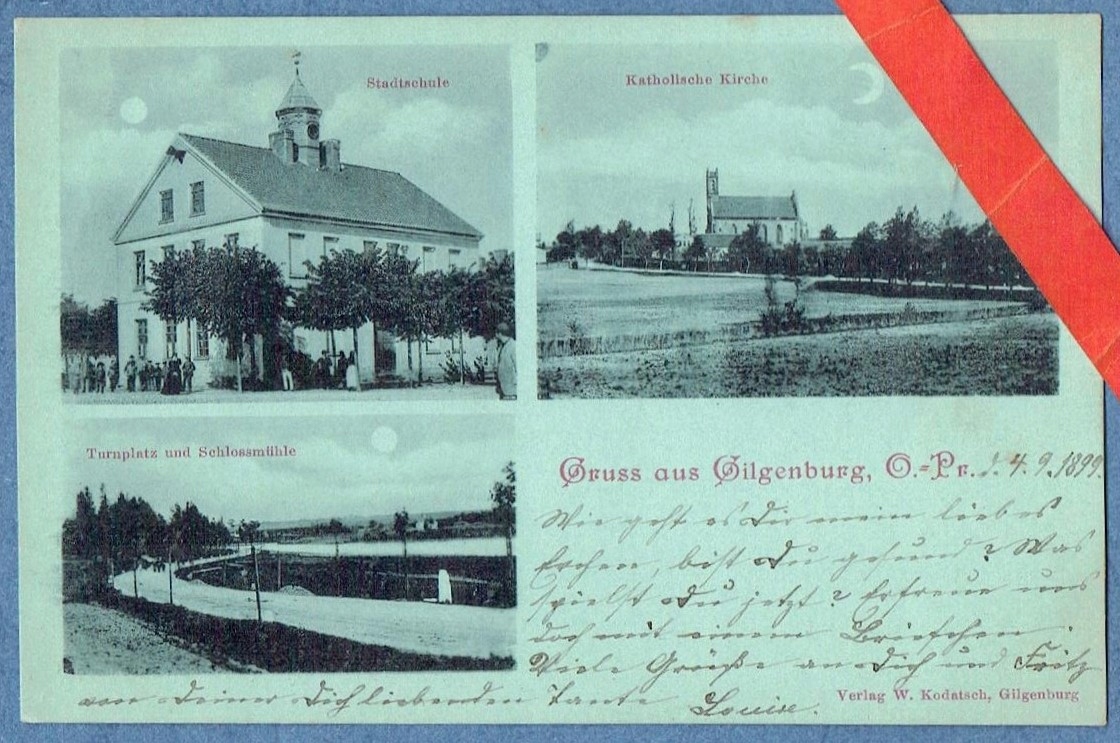 Stadtschule
Katholische Kirche
Turnplatz und Schlossmühle
Gruss aus Gilgenburg, O.-Pr. d. 4. 9. 1899.
Wie geht es Dir mein liebes
bist Du gesund? Was
spielst Du jetzt? Erfreue uns
doch mit einem Briefchen.
Viele Grüße an Dich und Fritz
von Deiner Dich liebenden Tante Louise.
Verlag W. Kodatsch, Gilgenburg